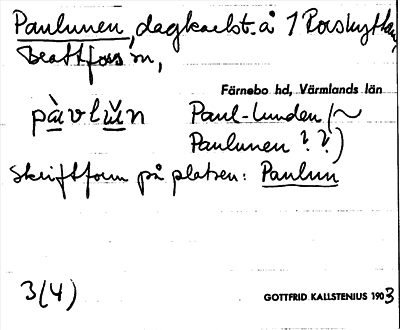 Paulunen, dagkarlst. å 1 Rosskyttan,
Brattfors sn,
Färnebo hd, Värmlands län
pàvlŭn Paul-lunden (~
Paulunen ? ?)
Skriftform på platsen: Paulun
3(4)
GOTTFRID KALLSTENIUS 1903